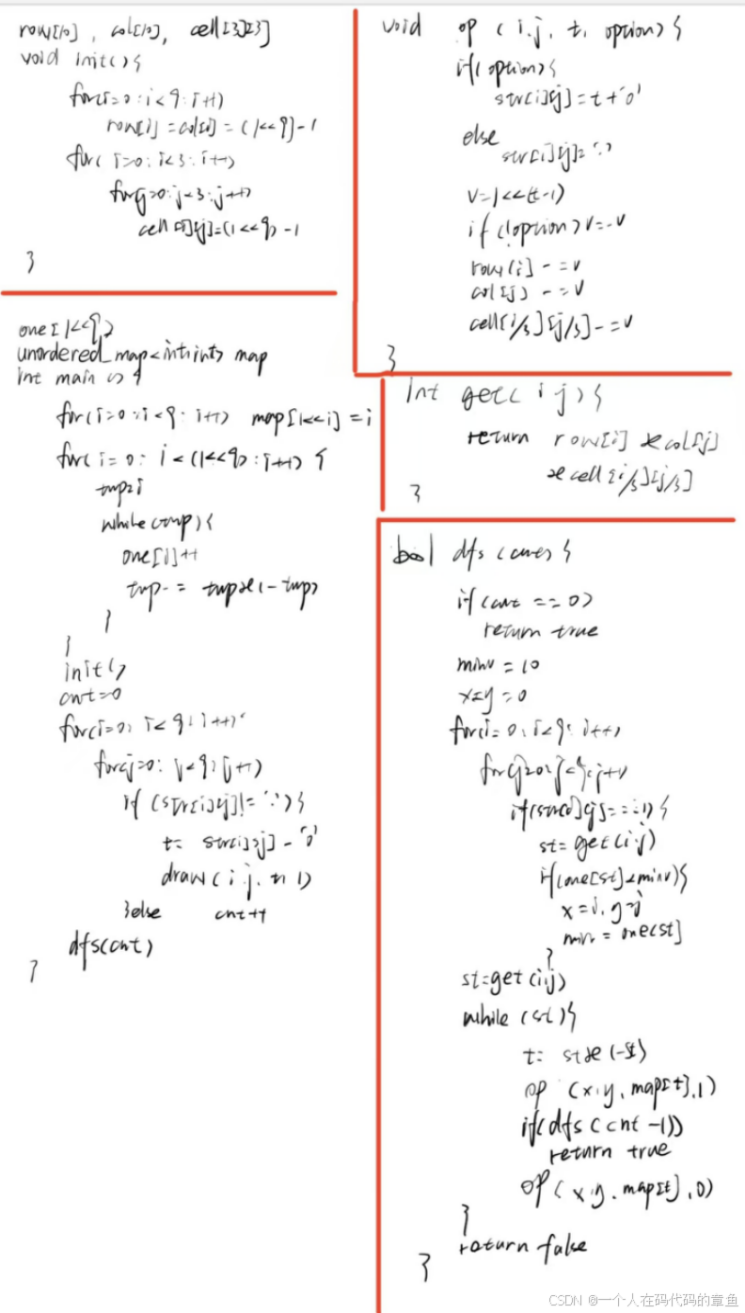 row[10], col[10], cell[3][3]
void init(){
for(i=0;i<9;i++)
row[i]=col[i]=(1<<9)-1
for(i=0;i<3;i++)
for(j=0;j<3;j++)
cell[i][j]=(1<<9)-1
}
one[1<<9]
unordered_map<int,int> map
int main(){
for(i=0;i<9;i++) map[1<<i]=i
for(i=0;i<(1<<9);i++){
tmp=i
while(tmp){
one[i]++
tmp-=tmp&(-tmp)
}
}
init()
cnt=0
for(i=0;i<9;i++)
for(j=0;j<9;j++)
if(str[i][j]!='.'){
t=str[i][j]-'0'
draw(i,j,t,1)
}else cnt++
dfs(cnt)
}
void op(i,j,t,option){
if(option){
str[i][j]=t+'0'
else
str[i][j]='.'
v=1<<(t-1)
if(!option)v=-v
row[i]-=v
col[j]-=v
cell[i/3][j/3]-=v
}
int get(i,j){
return row[i]&col[j]
&cell[i/3][j/3]
}
bool dfs(cnt){
if(cnt==0)
return true
minv=10
x=y=0
for(i=0;i<9;i++)
for(j=0;j<9;j++)
if(str[i][j]=='.'){
st=get(i,j)
if(one[st]<minv){
x=i,y=j
minv=one[st]
}
st=get(i,j)
while(st){
t=st&(-st)
op(x,y,map[t],1)
if(dfs(cnt-1))
return true
op(x,y,map[t],0)
}
return false
}
CSDN @一个人在码代码的章鱼